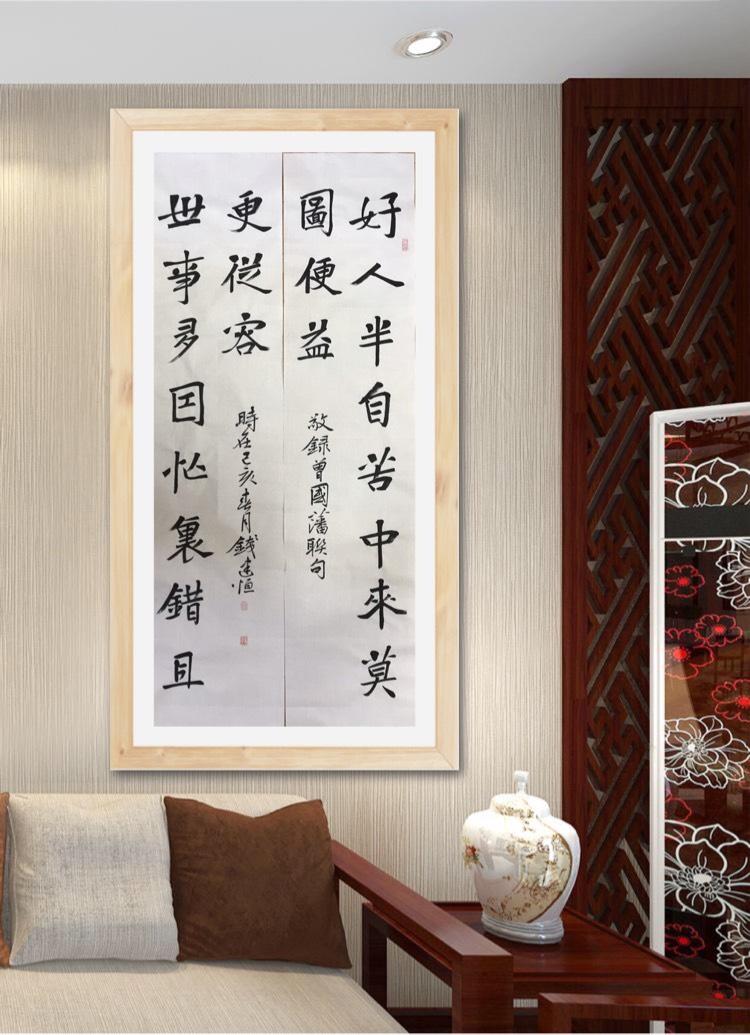 好人半自苦中來莫
圖便益
敬録曾國藩聯句
世事多囙忙裏錯且
更從容
時在己亥春月錢建恒